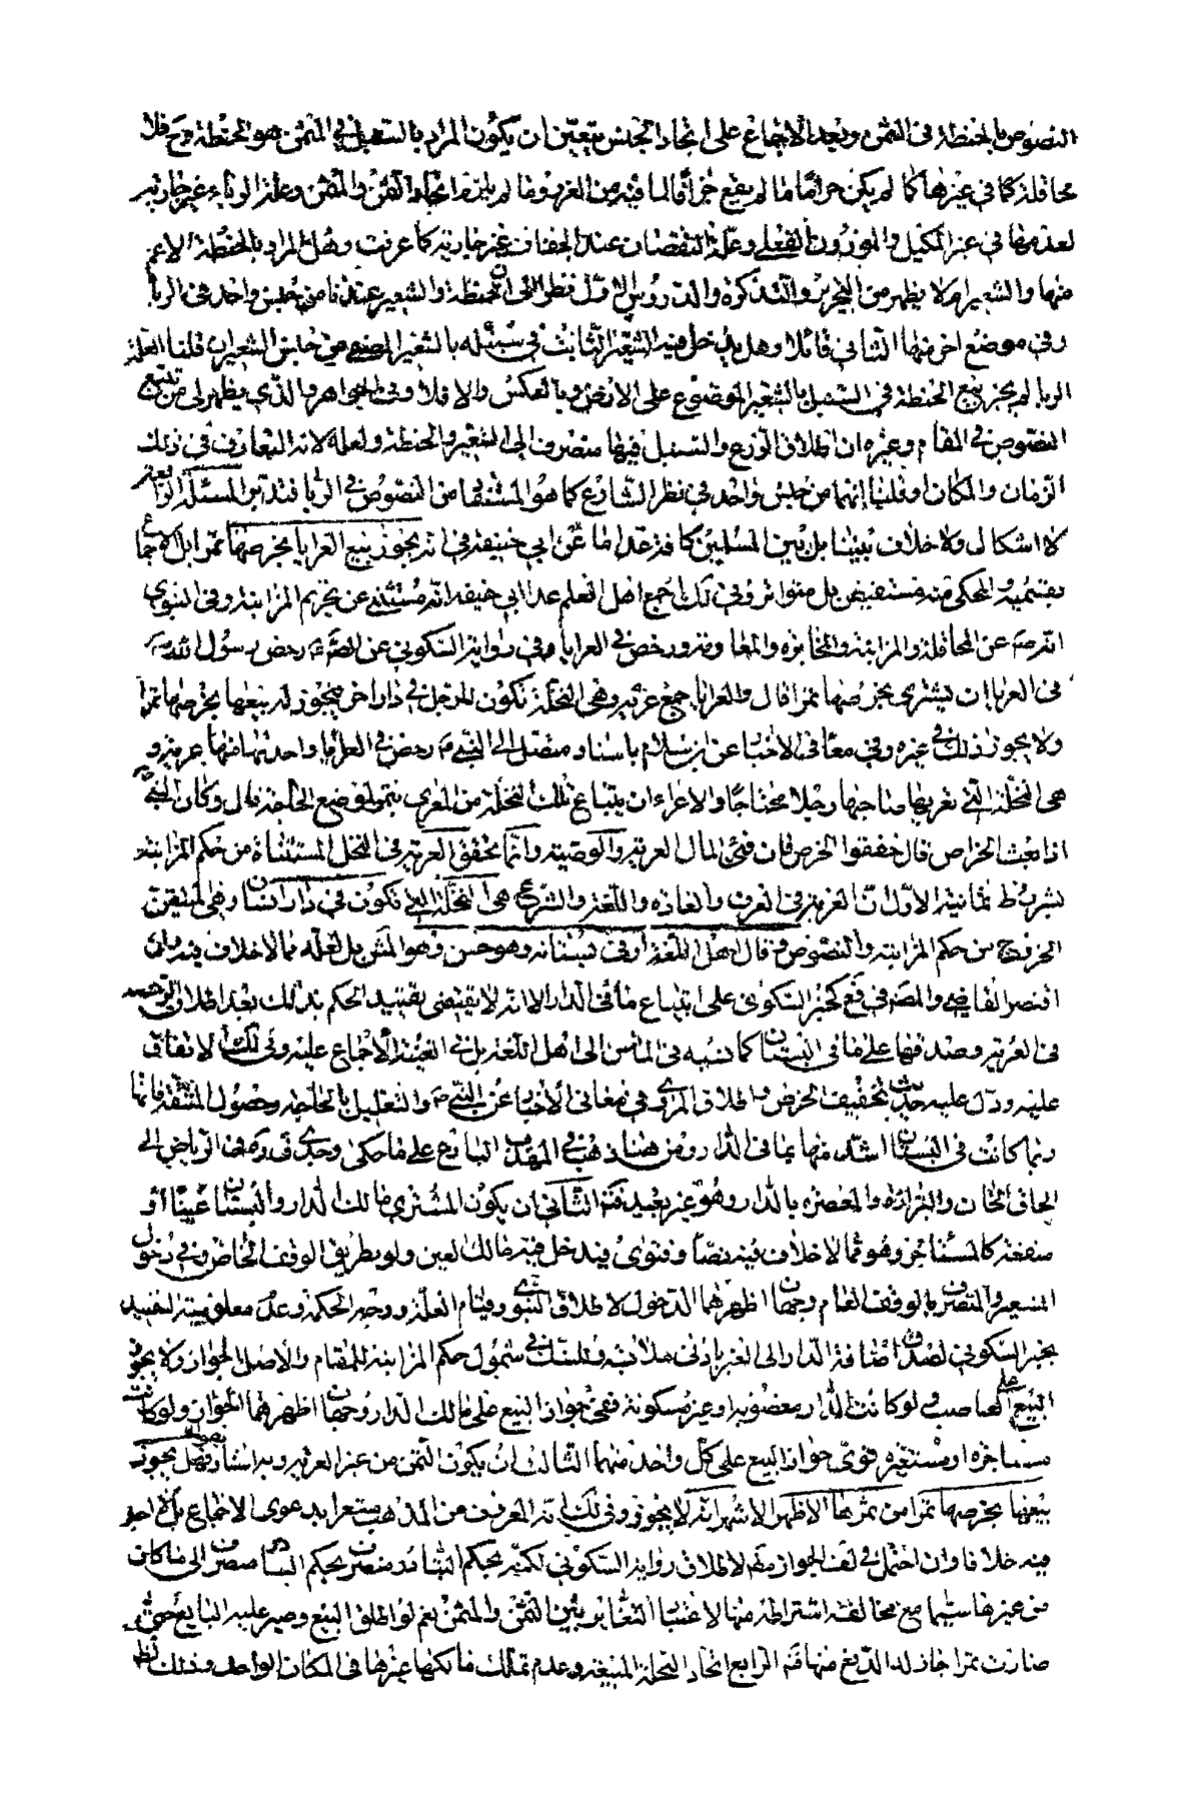 النصوص بالحنطة في الثمن وبعد الاجماع على اتحاد الجنس يتعين ان يكون المراد بالسنبل في المثمن هو الحنطة وح فلا
محاقلة كما في غيرها كما لم يكن حراما ما لم يقع جزافا لما فيه من الغرر وما لم يلزم اتحاد الثمن والمثمن وعلة الرباء غير جارية
لعدمها في غير المكيل والموزون الفعلي وعلة النقصان عند الجفاف غير جارية كما عرفت وهل المراد بالحنطة الاعم
منها والشعير ام لا يظهر من التحرير والتذكرة والدروس الاول نظرا الى ان الحنطة والشعير عندنا من جنس واحد في الربا
وفي موضع اخر منها الثاني قائلا وهل يدخل فيه الشعير الثابت في سنبله بالشعير المصفى من جنس الشعير ان قلنا العلة
الربا لم يجز بيع الحنطة في السنبل بالشعير الموضوع على الارض وبالعكس والا فلا وفي الجواهر والذي يظهر لي من تتبع
النصوص في المقام وغيره ان اطلاق الزرع والسنبل فيها منصرف الى الشعير والحنطة ولعله لانه المتعارف في ذلك
الزمان والمكان وقلنا انهما من جنس واحد في نظر الشارع كما هو المستفاد من النصوص في الربا فتدبر المسئلة الرابعة
لا اشكال ولا خلاف بيننا بل بين المسلمين كافة عدا ما عن ابي حنيفة في انه يجوز بيع العرايا بخرصها تمرا بل الاجماع
بقسميه المحكي منه مستفيض بل متواتر وفي لك اجمع اهل العلم عدا ابي حنيفة انه مستثنى عن تحريم المزابنة وفي النبوي
انه ص عن المحاقلة والمزابنة والمخابرة والمعاومة ورخص في العرايا وفي رواية السكوني عن الص ع رخص رسول الله ص
في العرايا ان تشترى بخرصها تمرا قال والعرايا جمع عرية وهي النخلة تكون للرجل في دار اخر فيجوز له بيعها بخرصها تمرا
ولا يجوز ذلك في غيره وفي معاني الاخبار عن ابن سلام باسناد متصل الى النبي ص رخص في العرايا واحدتها منها عرية و
هي النخلة التي يعريها صاحبها رجلا محتاجا والاعراء ان يبتاع تلك النخلة من المعري بتمر لموضع الحاجة قال وكان النبي ص
اذا بعث الخراص قال خففوا الخرص فان في المال العرية والوصية وانما يتحقق العرية في النخل المستثناة من حكم المزابنة
بشروط ثمانية الاول ان العرية في العرف والعادة واللغة والشرع هي النخلة التي تكون في دار انسان وهي المتيقن
الخروج من حكم المزابنة والنصوص وقال اهل اللغة او في بستانه وهو حسن وهو المشهور بل لعله مما لا خلاف فيه وان
اقتصر القاضي والمص في فع كخبر السكوني على ابتياع ما في الدار الا انه لا يقتضي تقييد الحكم بذلك بعد اطلاق الرخصة
في العرية وصدقها على ما في البستان كما نسبه في المالس الى اهل اللغة بل في الغنية الاجماع عليه وفي لك الاتفاق
عليه ودل عليه حديث تخفيف الخرص واطلاق المروي في معاني الاخبار عن النبي ص والتعليل بالحاجة وحصول المشقة فانها
ربما كانت في البستان اشد منها بما في الدار ومن هنا ذهب في المهذب البارع على ما حكي وجدي قدره في الرياض الى
الحاق الخان والبزازة والمعصرة بالدار وهو غير بعيد فتد الثاني ان يكون المشتري مالك الدار والبستان عينا او
منفعة كالمستاجر وهو مما لا خلاف فيه نصا وفتوى فيدخل فيه مالك العين ولو بطريق الوقف الخاص وفي دخول
المستعير والمتصرف بالوقف العام وجهان اظهرهما الدخول لاطلاق النبوي وقيام العلة ووجه الحكمة وعدم معلومية التقييد
بخبر السكوني لصدق اضافة الدار الى الغير بادنى ملابسة وللشك في شمول حكم المزابنة للمقام والاصل الجواز ولا يجوز
البيع على الغاصب ولو كانت الدار مغصوبة او غير مسكونة ففي جواز البيع على مالك الدار وجهان اظهرهما الجواز ولو كانت
مستاجرة او مستعيرة قوى جواز البيع على كل واحد منهما الثالث ان يكون الثمن من غير العرية وبه اشار بقوله وهل يجوز
بيعها بخرصها تمرا من تمرتها الاظهر الاشهر انه لا يجوز وفي لك انه المعروف من المذهب مشعرا بدعوى الاجماع بل لا اجد
فيه خلافا وان احتمل في لف الجواز منه لاطلاق رواية السكوني لكنه بحكم التبادر منصرف بحكم التبادر منصرف الى ما كان
من غيرها سيما مع مخالفته اشتراطه منها لاعتبار التغاير بين الثمن والمثمن نعم لو اطلق البيع وصبر عليه البايع حتى
صارت تمرا جاز له الدفع منها فتد الرابع اتحاد النخلة المبيعة وعدم تملك مالكها غيرها في المكان الواحد وذلك نظرا